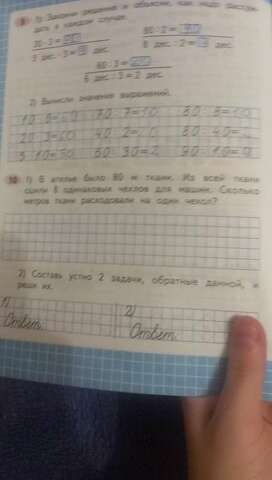 8 1) Закончи решение и объясни, как надо рассуж-
дать в каждом случае.
30 · 3 =
80 : 2 =
3 дес. · 3 = дес.
8 дес. : 2 = дес.
60 : 3 =
6 дес. : 3 = 2 дес.
2) Вычисли значения выражений.
70 : 7 = 10
20 · 3 = 60
5 · 10 = 50
60 : 30 = 2
90 : 10 = 9
10 1) В ателье было 80 м ткани. Из всей ткани
сшили 8 одинаковых чехлов для машин. Сколько
метров ткани расходовали на один чехол?
2) Составь устно 2 задачи, обратные данной, и
реши их.
1) 2)
Ответ: Ответ: